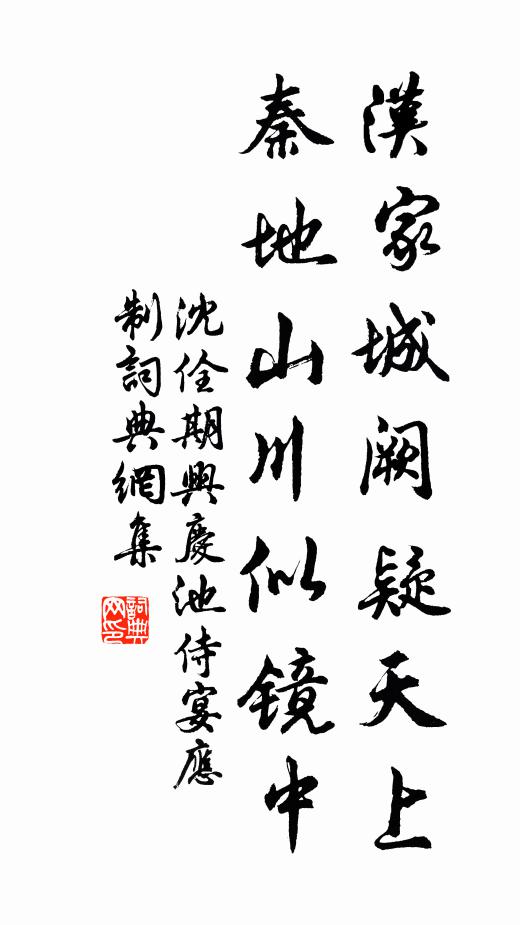 漢家城阙疑天上
秦地山川似镜中
沈佺期興慶池侍宴應
制詞典網集
詞典
网印